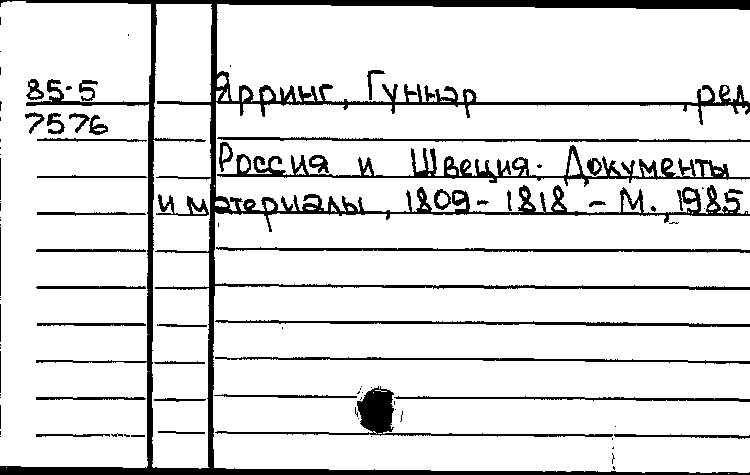 85-5 Ярринг, Гуннар , ред
7576
Россия и Швеция: Документы
и материалы, 1809-1818. - М., 1985